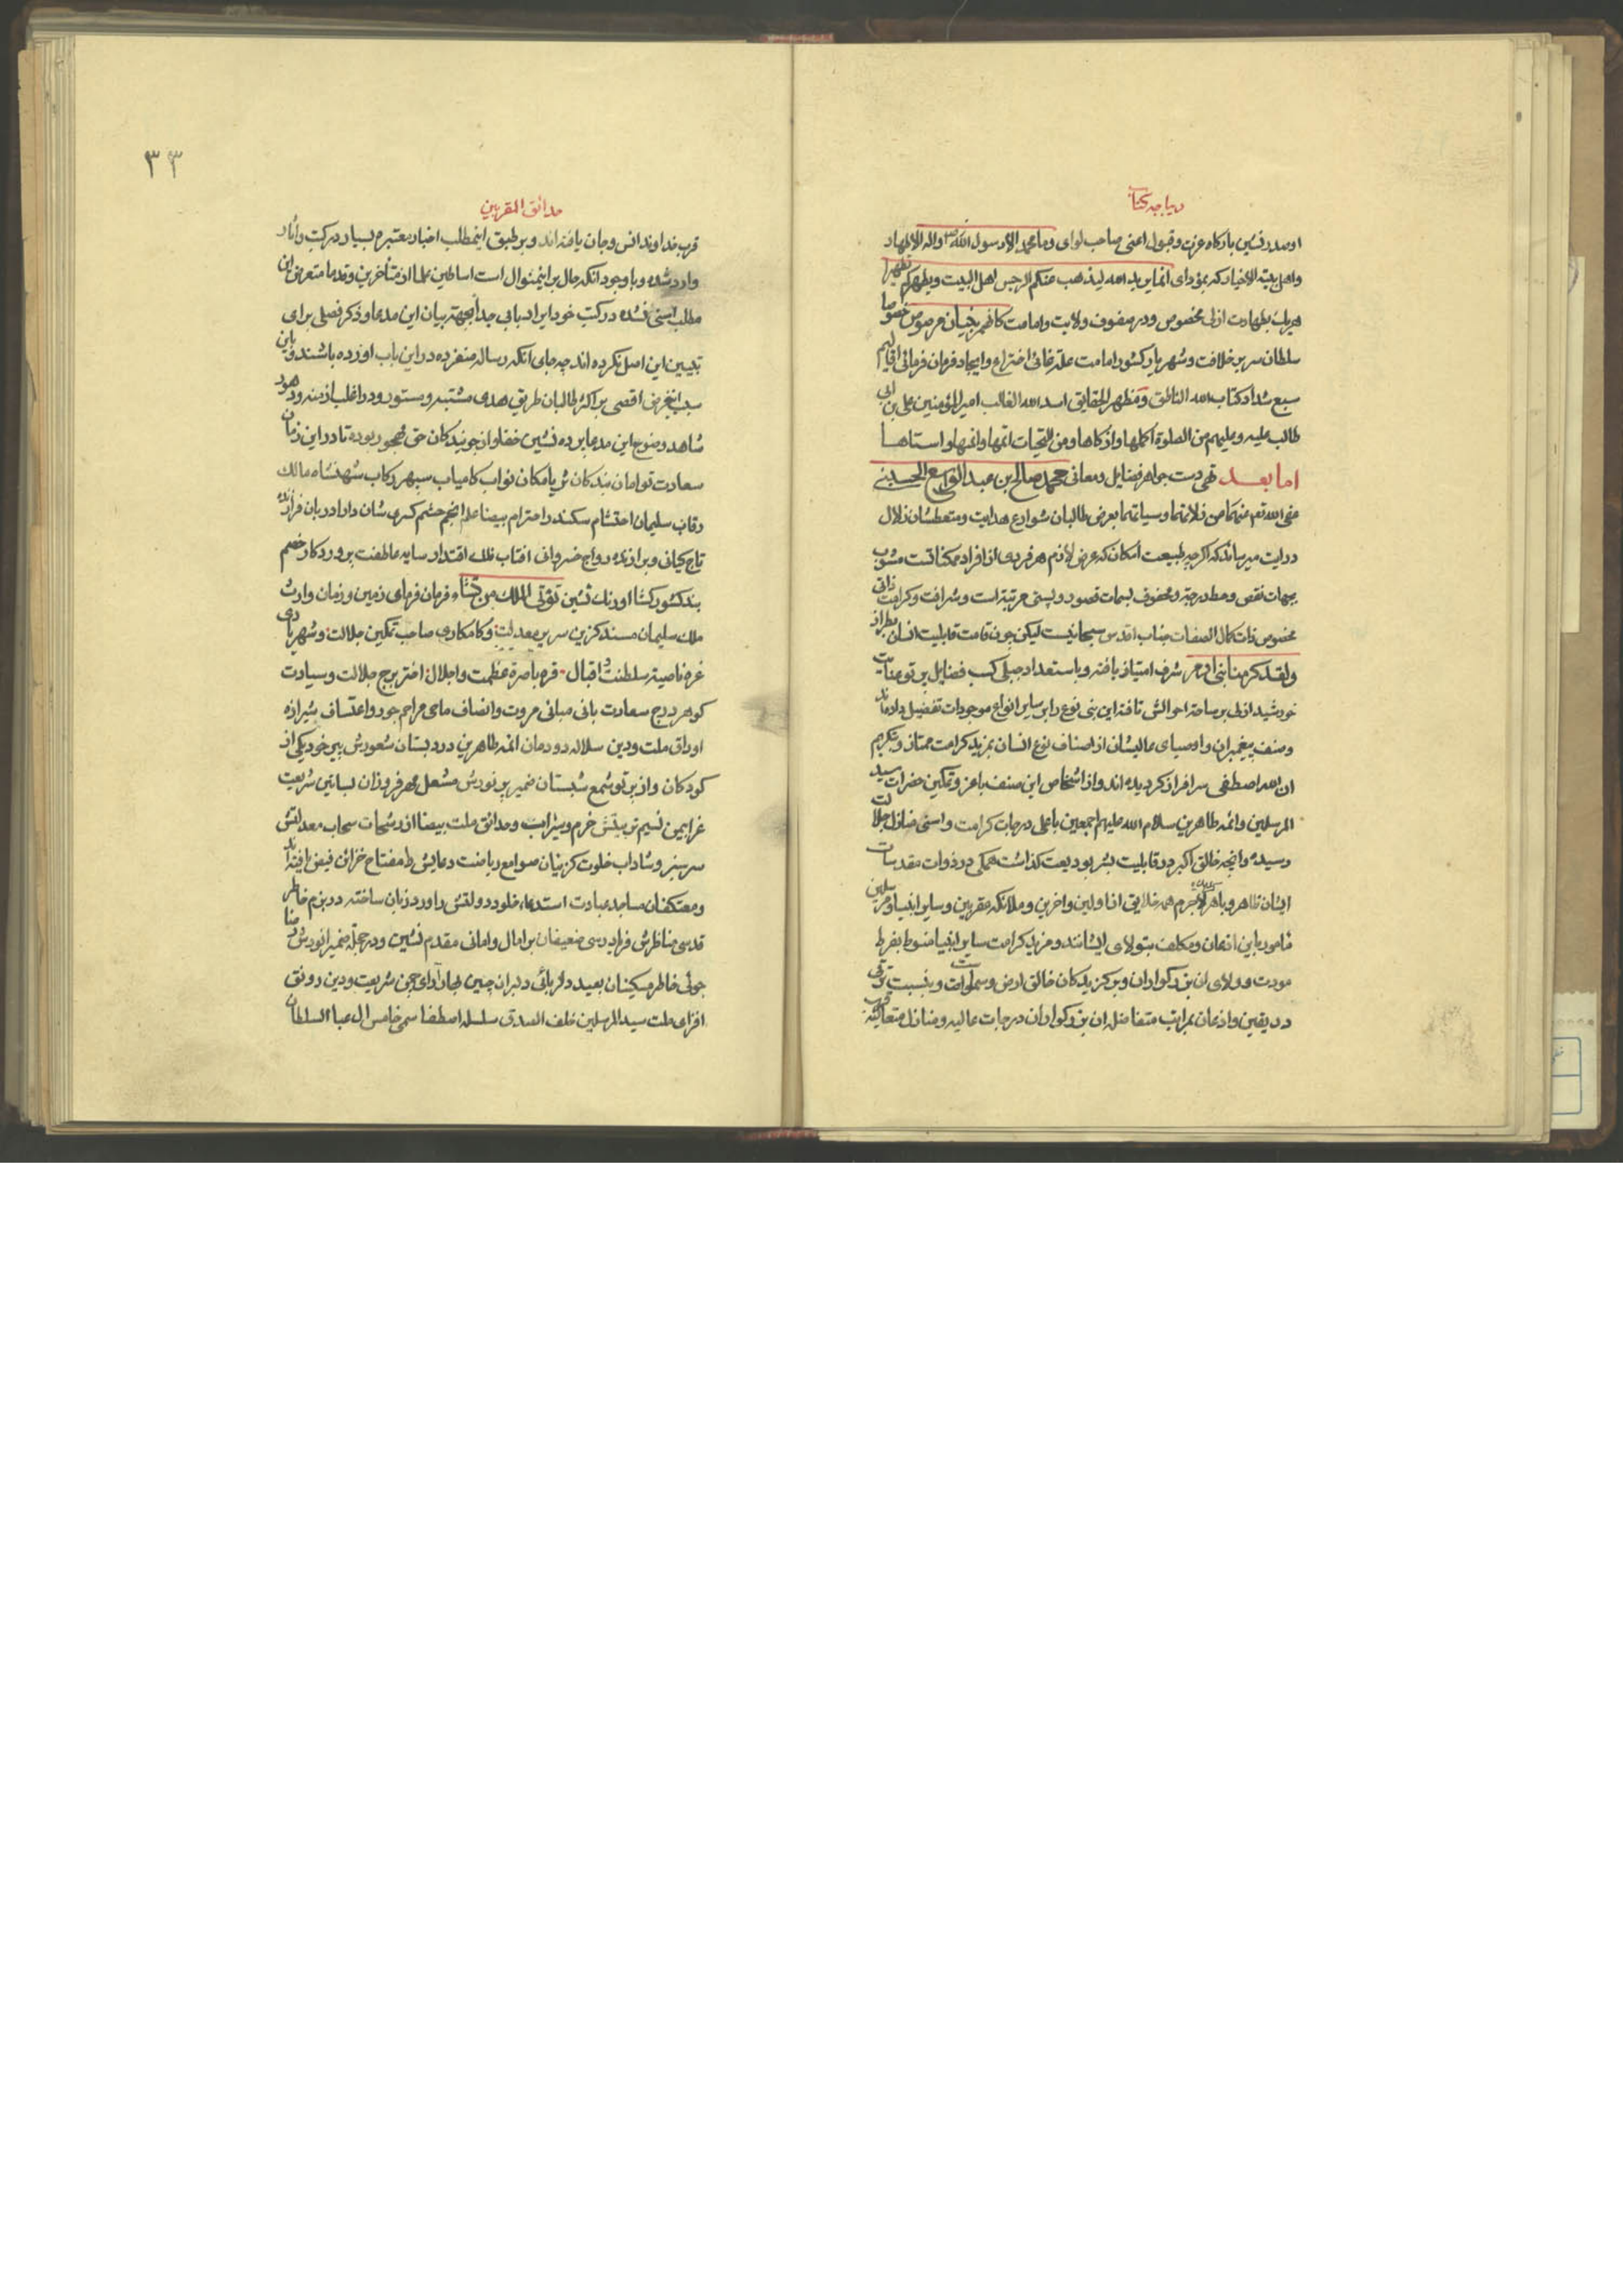 دیباجه کتاب
او صدر نشین بارکاه عزت و قبول اعنی صاحب لوای وما محمد الا رسول الله واله الاطهار
واهل بیته الاخیار که بمؤدای انما یرید الله لیذهب عنکم الرجس اهل البیت ویطهرکم تطهیرا
هریک بطهارت ازلی مخصوص و در صفوف ولایت و امامت کانهم بنیان مرصوص خصوصا
سلطان سریر خلافت و شهریار کشور امامت علة غائی اختراع و ایجاد فرمان فرمائی اقالیم
سبع شداد کتاب الله الناطق و مظهر الحقایق اسد الله الغالب امیر المؤمنین علی بن ابی
طالب علیه وعلیهم من الصلوة اکملها وازکاها ومن التحیات اتمها وانمیها واسناها
اما بعد تهی دست جواهر فضایل و معانی محمد صالح بن عبد الواسع الحسینی
عفی الله تعم عنهما من زلاتهما وسیاتهما بعرض طالبان شوارع هدایت و متعطشان زلال
درایت میرساند که اکرچه طبیعت امکان که عرض لازم هر فردی از افراد ممکناتست مشوب
بجهات نقص و حط درجة و محفوف بسمات قصور و پستی مرتبة است و شرافت و کرامت ذاتی
مخصوص ذات کمال الصفات جناب اقدس سبحانیست لیکن چون قامت قابلیت انسان بطراز
ولقد کرمنا بنی ادم شرف امتیاز یافته و باستعداد جبلی کسب فضایل پرتو عنایت
خورشید ازلی بر ساحة احوالش تافته این بنی نوع را بر سایر انواع موجودات تفضیل داده‌اند
وصنف پیغمبران و اوصیای عالیشان از اصناف نوع انسان بمزید کرامت ممتاز و بتکریم
ان الله اصطفی سرافراز کردیده‌اند و از اشخاص این صنف باعز و تمکین حضرات سید
المرسلین وائمه طاهرین سلام الله علیهم اجمعین باعلی درجات کرامت و اسنی منازل جلالت
رسیده وانچه خالق اکبر در قابلیت بشر بودیعت کذاشت همکی در ذوات مقدسات
ایشان ظاهر و باهر لاجرم همه خلایق از اولین واخرین و ملائکه مقربین و سایر انبیاء و مرسلین
مامور باین اذعان و مکلف بتولای ایشانند و مزید کرامت سایر انبیا منوط بفرط
مودت و ولای ان بزرکواران و برکزیدکان خالق ارض و سموات و بنسبت ترقی
در یقین و اذعان بمراتب متفاضله ان بزرکواران درجات عالیه و منازل متعالیه قرب
۳۳
حدائق المقربین
قرب خداوند انس و جان یافته‌اند و بر طبق اینمطلب اخبار معتبره بسیار در کتب و اثار
وارد شده و با وجود انکه حال بر اینمنوال است اساطین علما از متأخرین و قدما متعرض این
مطلب اسنی نشده در کتب خود ایراد بابی جدا بجهة بیان این مدعا و ذکر فصلی برای
تبیین این اصل نکرده‌اند چه جای انکه رساله منفرده در این باب اورده باشند و باین
سبب اینغرض اقصی بر اکثر طالبان طریق هدی مشتبه و مستور و در اغلب ازمنه و دهور
شاهد وضوح این مدعا پرده نشین خفا و از جویندکان حق مهجور بوده تا در این زمان
سعادت توامان بندکان ثریا مکان نواب کامیاب سپهر رکاب شهنشاه مالک
رقاب سلیمان احتشام سکندر احترام بیضا علم انجم حشم کسری شان دارا دربان فرازنده
تاج کیانی و برازنده دواج خسروانی افتاب فلک اقتدار سایه عاطفت پروردکار خصم
بند کشور کشا اورنک نشین تؤتی الملک من تشاء فرمان فرمای زمین و زمان وارث
ملک سلیمان مسند کزین سریر معدلت و کامکاری صاحب تمکین جلالت و شهریاری
غره ناصیة سلطنت و اقبال قره باصرة عظمت و اجلال اختر برج جلالت و سیادت
کوهر درج سعادت بانی مبانی مروت و انصاف ماحی مراسم جور و اعتساف شیرازه
اوراق ملت و دین سلاله دودمان ائمه طاهرین در دبستان شعورش پیر خرد یکی از
کودکان و از پرتو شمع شبستان ضمیر پر نورش مشعل مهر فروزان بساتین شریعت
غرا بیمن نسیم تربیتش خرم و سیراب و حدائق ملت بیضا از رشحات سحاب معدلتش
سر سبز و شاداب خلوت کزینان صوامع ریاضت دعایش را مفتاح خزائن فیض یافته‌اند
و معتکفان مساجد عبادت استدعاء خلود دولتش را ورد زبان ساخته در بزم خاطر
قدسی مناظرش فریادرسی ضعیفان بر امال و امانی مقدم نشین و در حجلة ضمیر انورش رضا
جوئی خاطر مسکینان بعید دلربائی دلبران چین جهان آرای چمن شریعت و دین رونق
افزای ملت سید المرسلین خلف الصدق سلسله اصطفا سمی خامس ال عبا السلطان